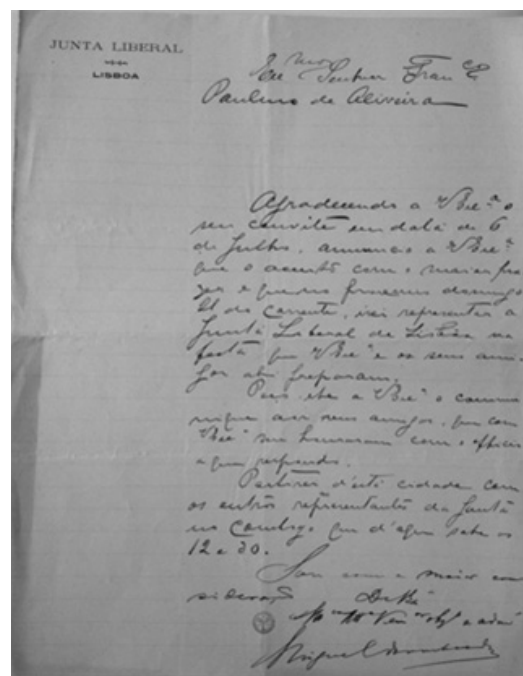 JUNTA LIBERAL
LISBOA
Senhor Franco
Paulino de Oliveira
Agradecendo a V. Exc.ª o
seu convite em data de 6
de Julho, annuncio a V. Exc.ª
que o acceito com o maior pra
zer e que no proximo domingo
21 do corrente, irei representar a
Junta Liberal de Lisboa na
festa que V. Exc.ª e os seus ami
gos ahi preparam.
a V. Exc.ª o commu
nique aos seus amigos, que com
V. Exc.ª me honraram com o officio
a que respondo.
Partirei d'esta cidade com
os outros representantes da Junta
no comboyo que d'aqui sahe as
12 e 30.
Sou com a maior con
sideração De V. Ex.ª
Miguel Bombarda